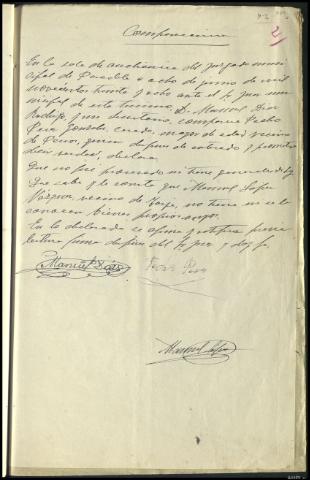 2
Comparecencia
En la sala de audiencia del Juzgado muni-
cipal de Paradela a ocho de junio de mil
novecientos treinta y ocho ante el Sr. Juez mu-
nicipal de este termino, D. Manuel Díaz
y su Secretario, comparece Pedro
Pena González, casado, mayor de edad vecino
de Pena, quien después de enterado y prometer
decir verdad, declara:
Que no fue procesado ni tiene
Que sabe y le consta que Manuel López
Vázquez, vecino de no tiene ni se le
conocen bienes propios suyos.
En lo declarado se afirma y ratifica previa
lectura firma después del Sr. Juez y doy fe
Manuel Díaz Pedro Pena
Manuel López